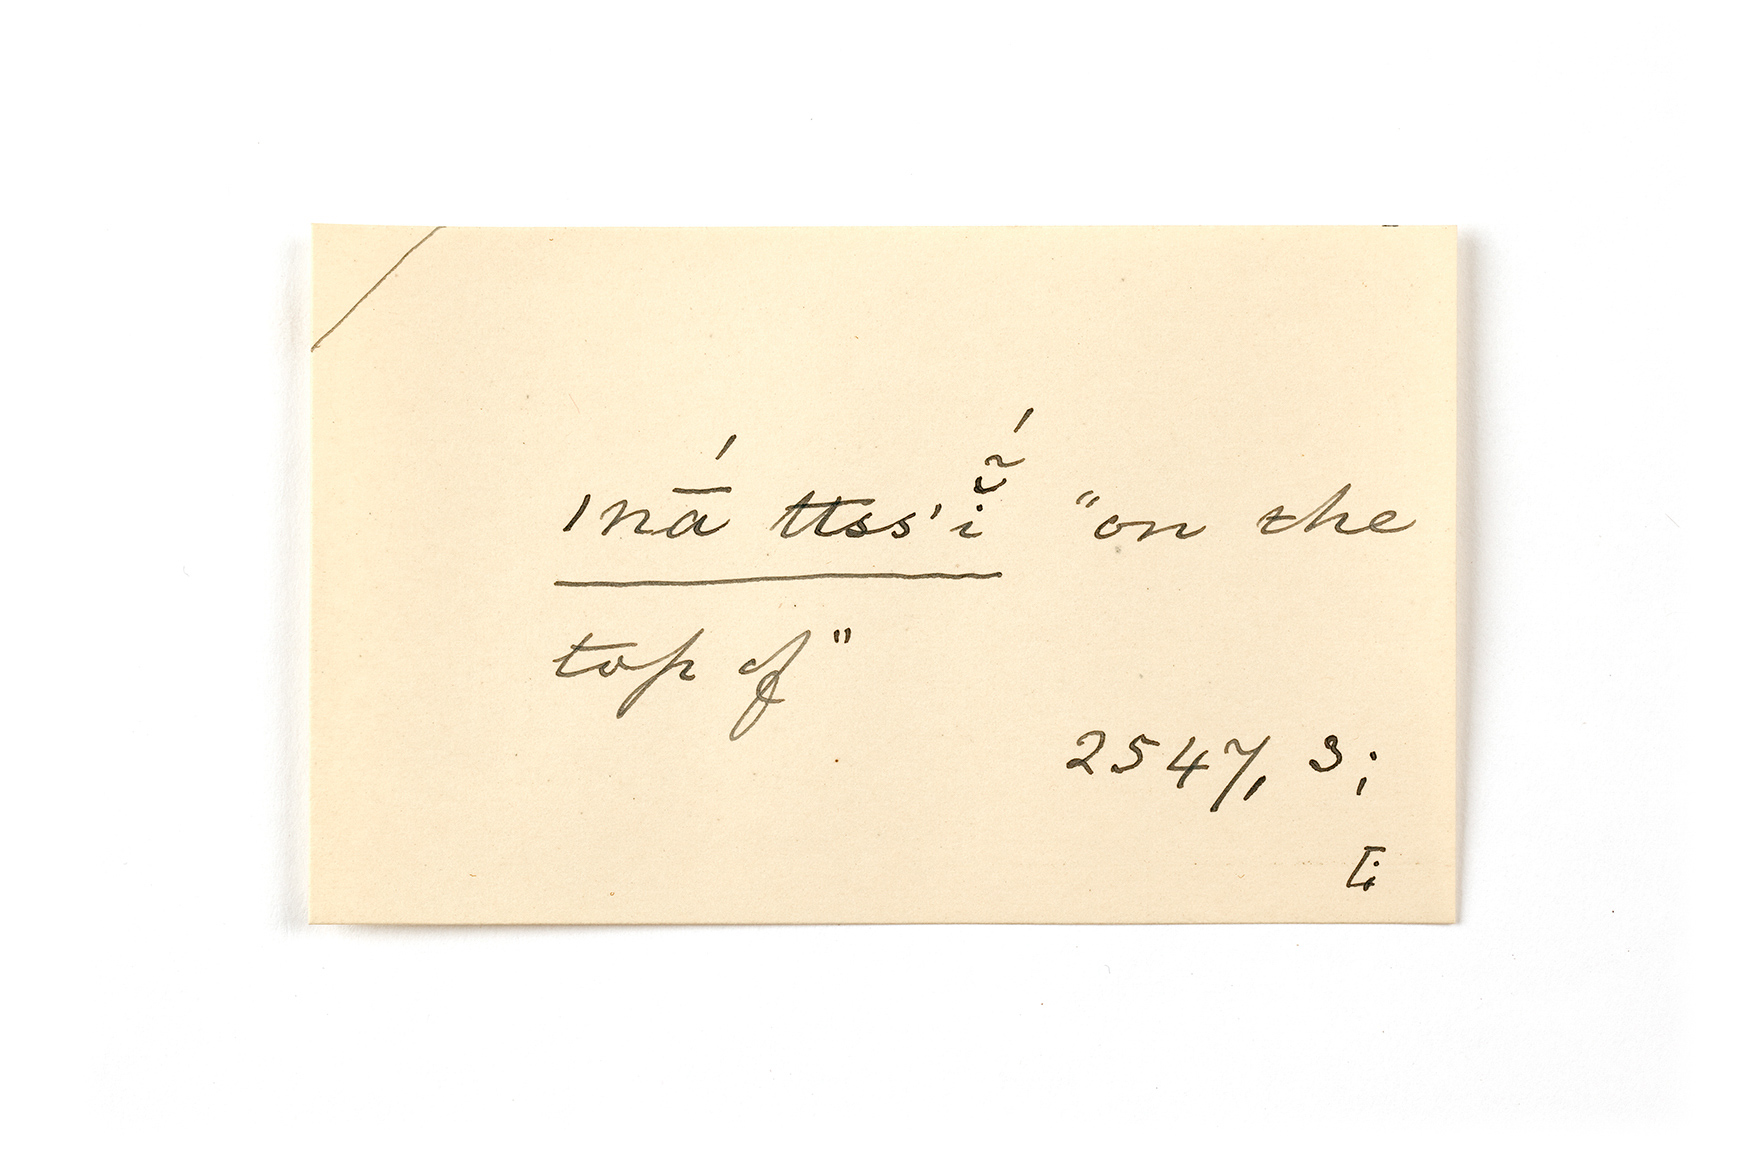 ǀnā́ ttss'ĭ̃́ "on the
top of"
2547, 3;